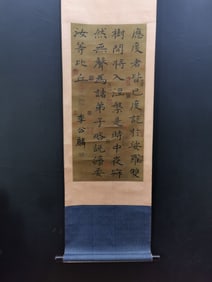 應度者皆已度訖於娑羅雙
樹間將入涅槃是時中夜寂
然無聲為諸弟子略說法要
汝等比丘
李公麟